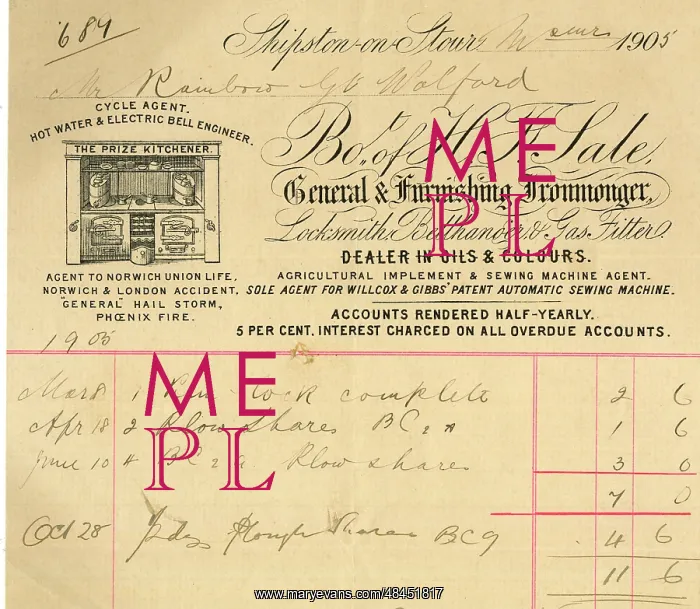 684
Shipston-on-Stour 1905
Mr Rainbow Gt Wolford
CYCLE AGENT.
HOT WATER & ELECTRIC BELL ENGINEER.
THE PRIZE KITCHENER.
Bot. of H. F. Sale,
General & Furnishing Ironmonger,
Locksmith, Bellhanger & Gas Fitter.
DEALER IN OILS & COLOURS.
AGRICULTURAL IMPLEMENT & SEWING MACHINE AGENT.
SOLE AGENT FOR WILLCOX & GIBBS' PATENT AUTOMATIC SEWING MACHINE.
ACCOUNTS RENDERED HALF-YEARLY.
5 PER CENT. INTEREST CHARGED ON ALL OVERDUE ACCOUNTS.
AGENT TO NORWICH UNION LIFE,
NORWICH & LONDON ACCIDENT,
"GENERAL" HAIL STORM,
PHŒNIX FIRE.
1905
Mar 8 1 lock complete 2 6
Apr 18 2 Plow shares BC 2 A 1 6
June 10 4 BC 2 Plow shares 3 0
7 0
Oct 28 Plough Shares BC9 4 6
11 6
ME
PL
ME
PL
www.maryevans.com/48451817